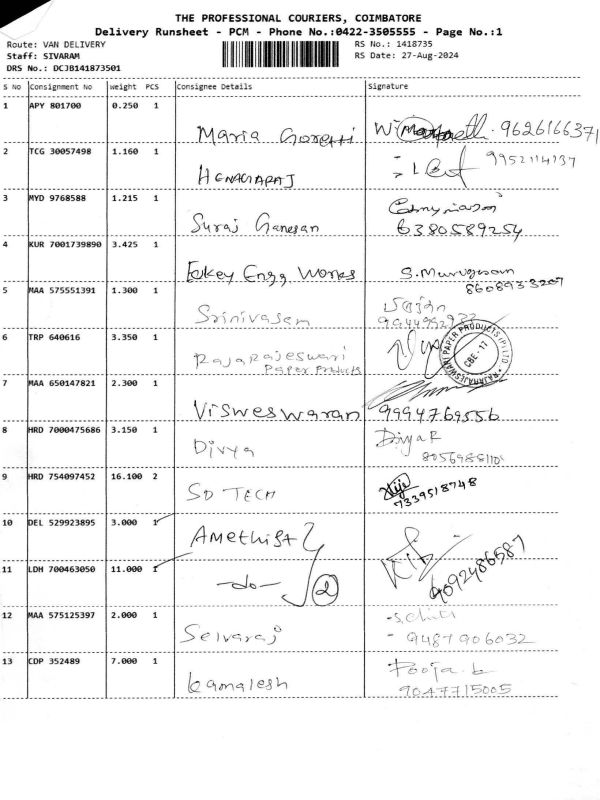 THE PROFESSIONAL COURIERS, COIMBATORE
Delivery Runsheet - PCM - Phone No.:0422-3505555 - Page No.:1
Route: VAN DELIVERY RS No.: 1418735
Staff: SIVARAM RS Date: 27-Aug-2024
DRS No.: DCJB141873501
S No Consignment No Weight PCS Consignee Details Signature
1 APY 801700 0.250 1
Maria Goretti 9626166371
2 TCG 30057498 1.160 1
9952114137
3 MYD 9768588 1.215 1
Suraj Ganesan 6380589254
4 KUR 7001739890 3.425 1
Eekey Engg Works S. Murugesan
8608933207
5 MAA 575551391 1.300 1
Srinivasan
6 TRP 640616 3.350 1
Rajarajeswari
Paper Products
RAJARAJESWARI PAPER PRODUCTS (P) LTD.
CBE-17
7 MAA 650147821 2.300 1
Visweswaran 9994769556
8 HRD 7000475686 3.150 1
Divya Divya R
8056988110
9 HRD 754097452 16.100 2
SD TECH
7339518748
10 DEL 529923895 3.000 1
Amethist
11 LDH 700463050 11.000 1
-do- 2
9092486587
12 MAA 575125397 2.000 1
Selvaraj
- 9487906032
13 CDP 352489 7.000 1
Kamalesh Pooja. k
9047715005